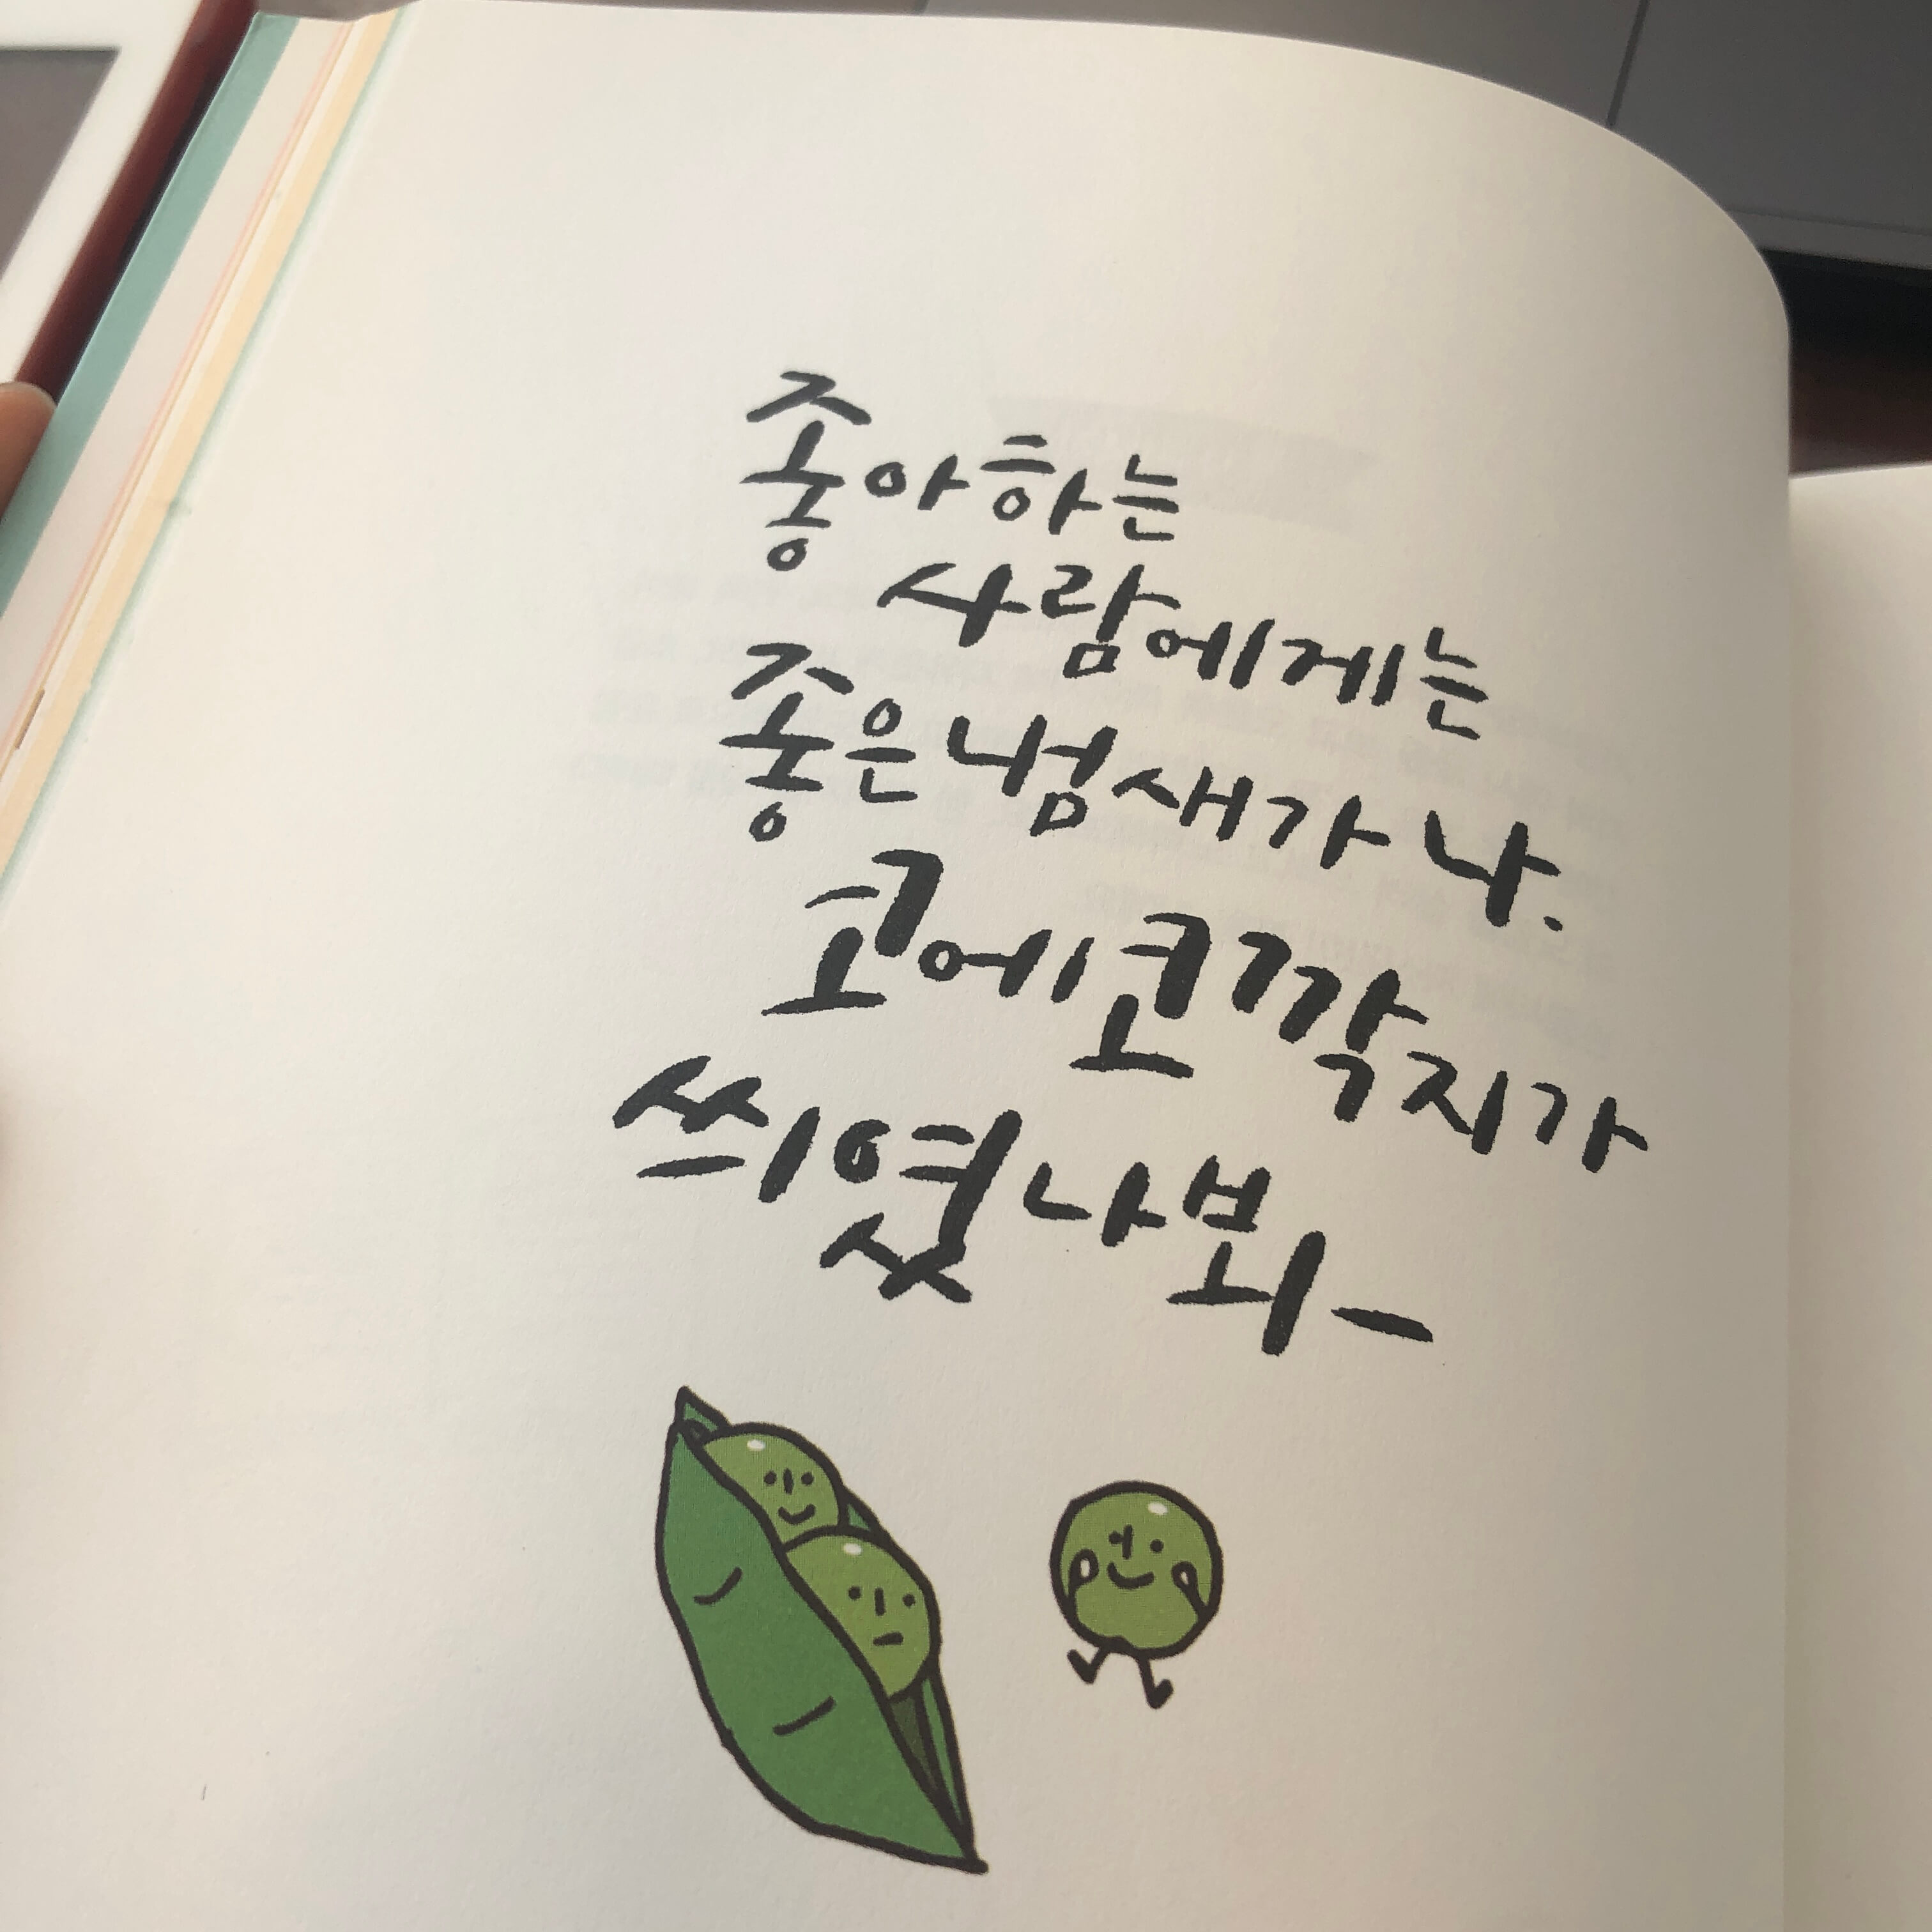 좋아하는
사람에게는
좋은 냄새가 나.
코에 코깍지가
씌였나 뵈-